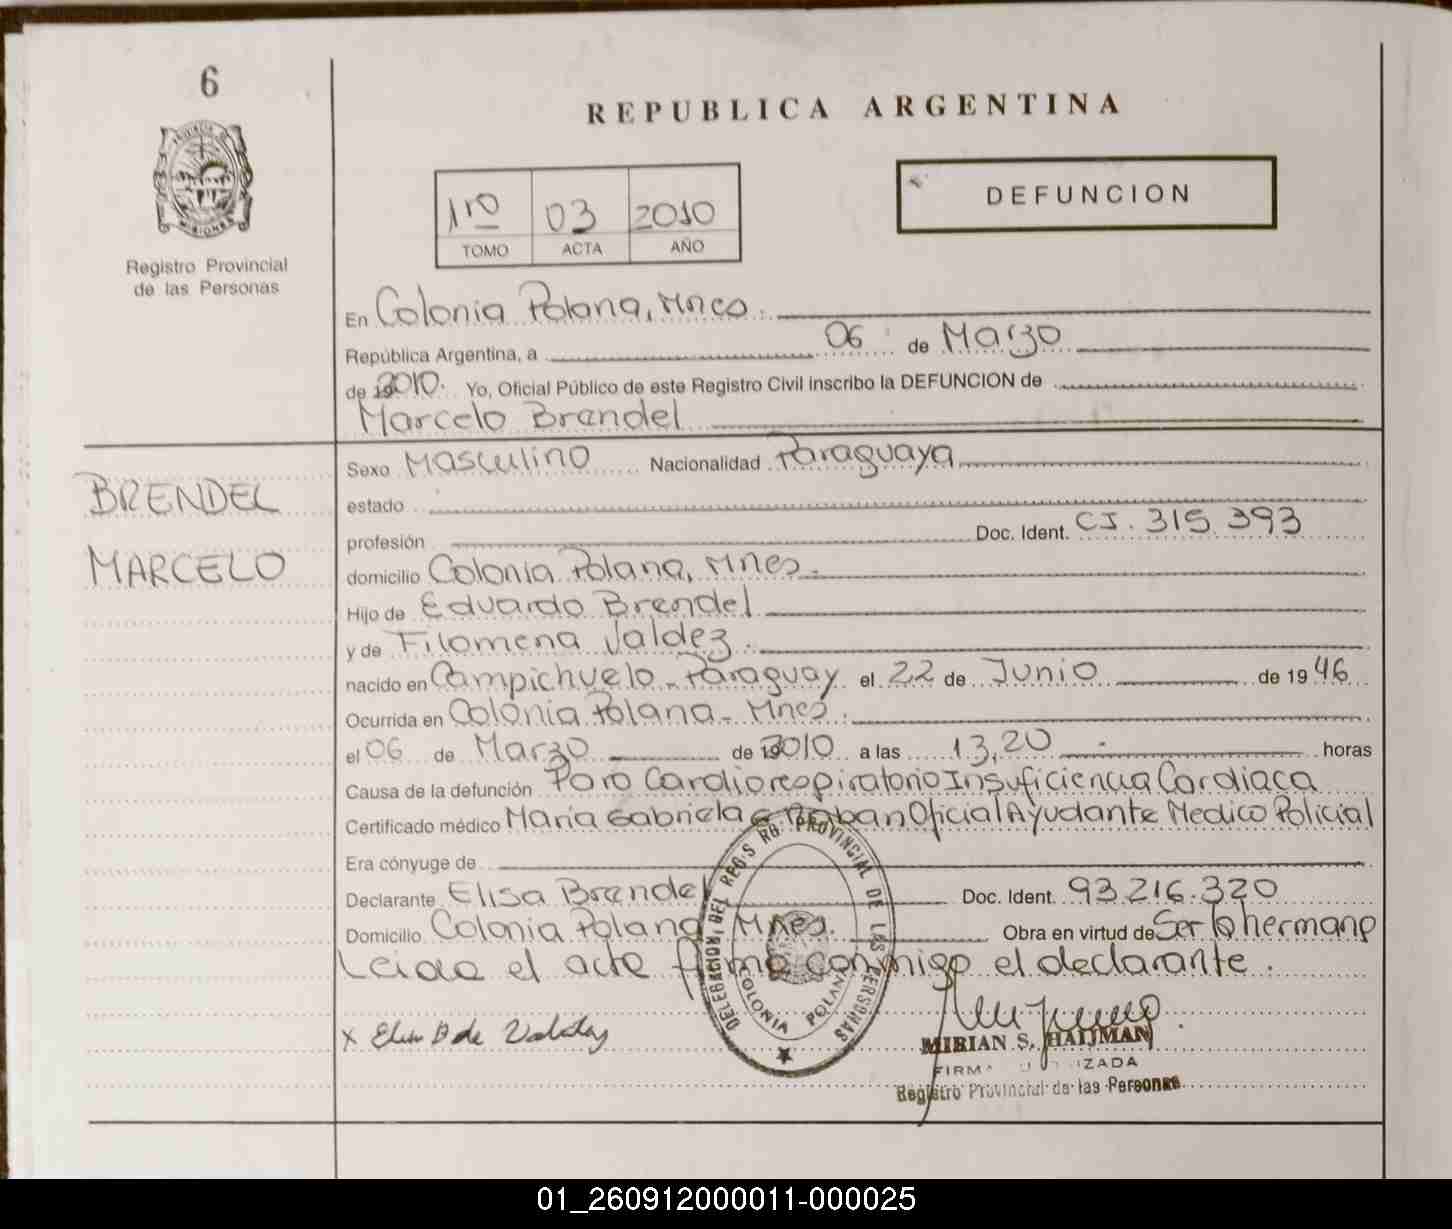 6
REPUBLICA ARGENTINA
1ro 03 2010
TOMO ACTA AÑO
DEFUNCION
MISIONES
Registro Provincial
de las Personas
En Colonia Polana, Mnes.
República Argentina, a 06 de Marzo
de 2010. Yo, Oficial Público de este Registro Civil inscribo la DEFUNCION de
Marcelo Brendel
BRENDEL
MARCELO
Sexo Masculino Nacionalidad Paraguaya
estado
profesión Doc. Ident. CI. 315.393
domicilio Colonia Polana, Mnes.
Hijo de Eduardo Brendel
y de Filomena Valdez.
nacido en Campichuelo - Paraguay el 22 de Junio de 1946
Ocurrida en Colonia Polana - Mnes.
el 06 de Marzo de 2010 a las 13,20 horas
Causa de la defunción Paro Cardiorespiratorio Insuficiencia Cardiaca
Certificado médico Maria Gabriela Oficial Ayudante Medico Policial
Era cónyuge de
Declarante Elisa Brendel Doc. Ident. 93.216.320
Domicilio Colonia Polana Mnes. Obra en virtud de Ser la hermana
Leida el acta firma conmigo el declarante.
DELEGACION DEL REGIS RO PROVINCIAL DE LAS PERSONAS
COLONIA POLANA
x Elisa B de Valdez
MIRIAN S. HAIJMAN
FIRMA IZADA
Registro Provincial de las Personas
01_260912000011-000025